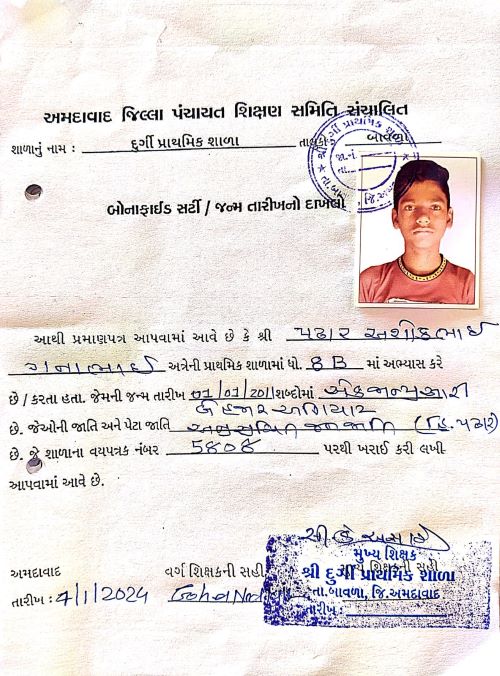 અમદાવાદ જિલ્લા પંચાયત શિક્ષણ સમિતિ સંચાલિત
શાળાનું નામ : દુર્ગી પ્રાથમિક શાળા તાલુકો બાવળા
બોનાફાઈડ સર્ટી / જન્મ તારીખનો દાખલો
આથી પ્રમાણપત્ર આપવામાં આવે છે કે શ્રી પઢાર અશોકભાઈ
ગનાભાઈ અત્રેની પ્રાથમિક શાળામાં ધો. 8 B માં અભ્યાસ કરે
છે / કરતા હતા. જેમની જન્મ તારીખ 01/01/2011 શબ્દોમાં એક જાન્યુઆરી
બે હજાર અગિયાર
છે. જેઓની જાતિ અને પેટા જાતિ અનુસૂચિત જનજાતિ (હિ.પઢાર)
છે. જે શાળાના વયપત્રક નંબર 5808 પરથી ખરાઈ કરી લખી
આપવામાં આવે છે.
મુખ્ય શિક્ષક
અમદાવાદ વર્ગ શિક્ષકની સહી શ્રી દુર્ગી પ્રાથમિક શાળા
તા.બાવળા, જિ.અમદાવાદ
તારીખ : 7/1/2024 તારીખ :